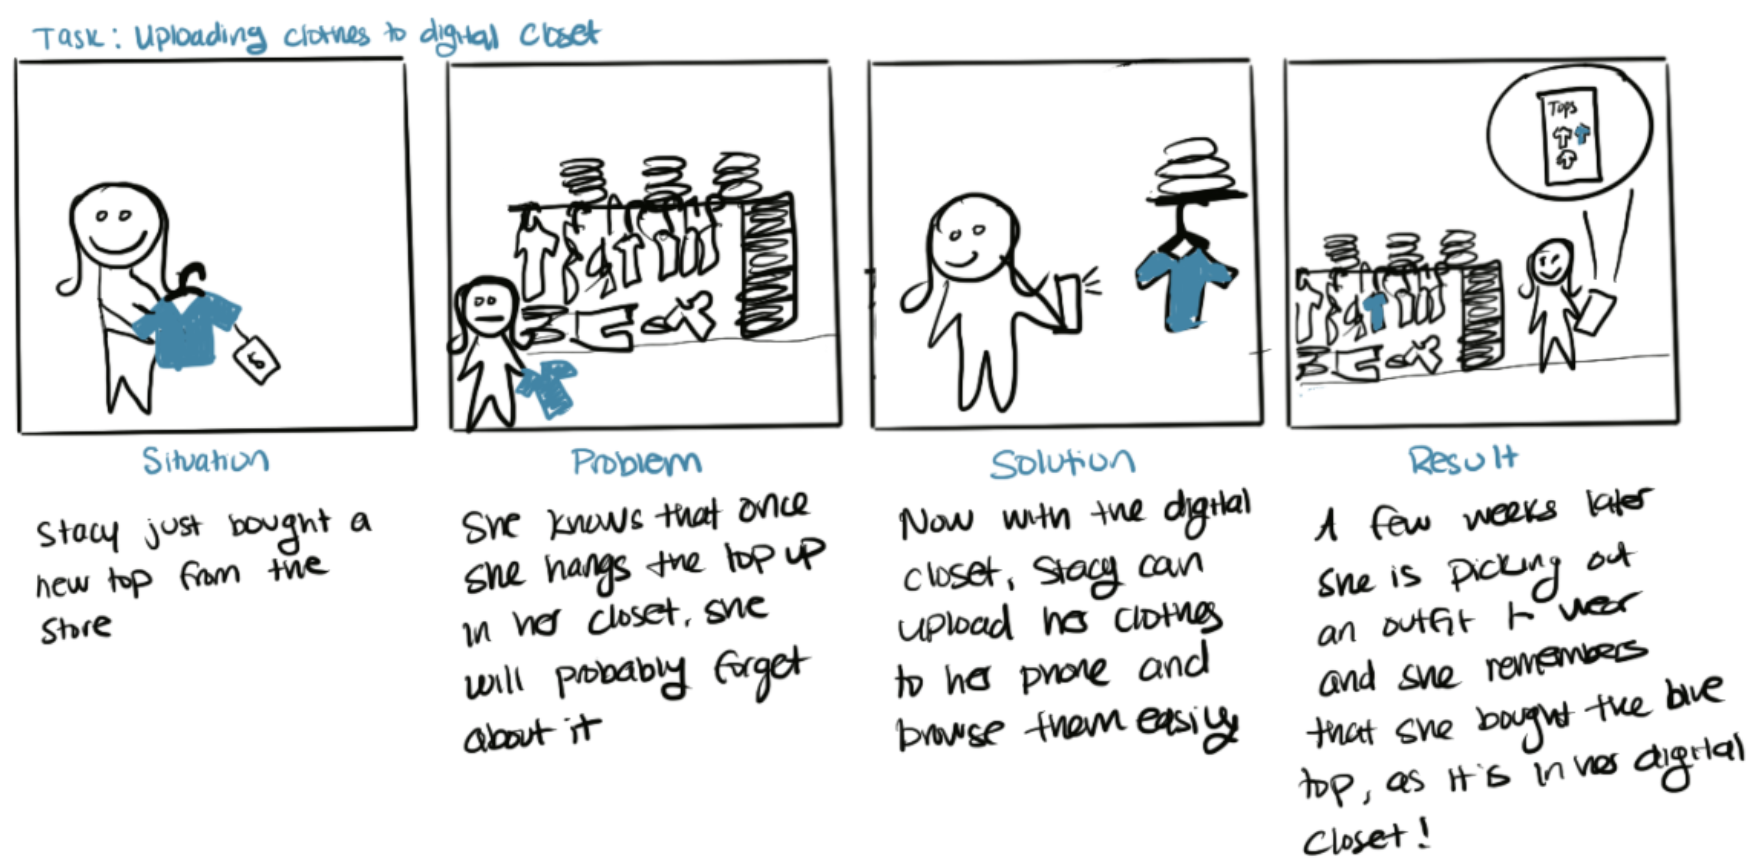 Task: Uploading clothes to digital closet
$
Tops
Situation
Stacy just bought a
new top from the
store
Problem
She knows that once
she hangs the top up
in her closet, she
will probably forget
about it
Solution
Now with the digital
closet, Stacy can
upload her clothes
to her phone and
browse them easily
Result
A few weeks later
she is picking out
an outfit to wear
and she remembers
that she bought the blue
top, as it is in her digital
closet!